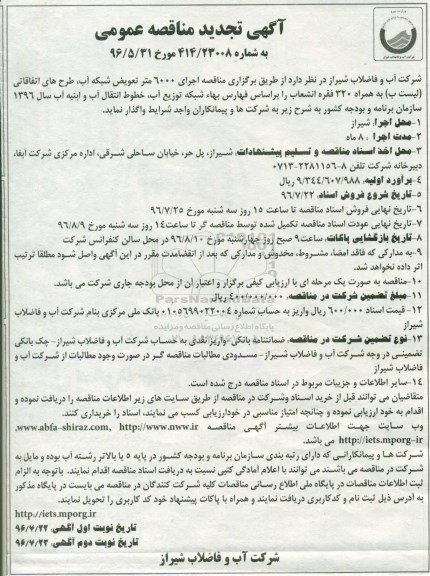 آگهی تجدید مناقصه عمومی
به شماره ۴۱۴/۲۳۰۰۸ مورخ ۹۶/۵/۳۱
شرکت آب و فاضلاب شیراز در نظر دارد از طریق برگزاری مناقصه اجرای ۶۰۰۰ متر تعویض شبکه آب، طرح های اتفاقاتی
(لیست ب) به همراه ۳۲۰ فقره انشعاب را براساس فهارس بهاء شبکه توزیع آب، خطوط انتقال آب و ابنیه آب سال ۱۳۹۶
سازمان برنامه و بودجه کشور به شرح زیر به شرکت ها و پیمانکاران واجد شرایط واگذار نماید.
۱-محل اجرا. شیراز
۲-مدت اجرا . ۸ ماه
۳-محل اخذ اسناد مناقصه و تسلیم پیشنهادات. شیراز، پل حر، خیابان ساحلی شرقی، اداره مرکزی شرکت آبفا،
دبیرخانه شرکت تلفن ۸-۲۲۸۱۱۵۶-۰۷۱۳
۴-برآورد اولیه. ۹/۳۴۴/۶۰۷/۹۸۸ ریال
۵-تاریخ شروع فروش اسناد. ۹۶/۷/۲۲
۶-تاریخ نهایی فروش اسناد مناقصه تا ساعت ۱۵ روز سه شنبه مورخ ۹۶/۷/۲۵
۷-تاریخ نهایی عودت اسناد مناقصه تکمیل شده توسط مناقصه گر تا ساعت۱۴ روز سه شنبه مورخ ۹۶/۸/۹
۸-تاریخ بازگشایی پاکات. ساعت۹ صبح روز چهارشنبه مورخ ۹۶/۸/۱۰ در محل سالن کنفرانس شرکت
۹-به مدارکی که فاقد امضا، مشروط، مخدوش و مدارکی که بعد از انقضامدت مقرر در این آگهی واصل شود مطلقا ترتیب
اثر داده نخواهد شد.
۱۰-مناقصه به صورت یک مرحله ای با ارزیابی کیفی برگزار و اعتباران از محل بودجه جاری شرکت می باشد.
۱۱-مبلغ تضمین شرکت در مناقصه. ۴۰۰/۰۰۰/۰۰۰ ریال
۱۲-قیمت اسناد ۶۰۰/۰۰۰ ریال واریز به حساب شماره ۰۱۰۵۶۹۹۰۲۲۰۰۴ بانک ملی مرکزی بنام شرکت آب و فاضلاب
شیراز
۱۳-نوع تضمین شرکت در مناقصه. ضمانتنامه بانکی-واریز نقدی به حساب شرکت آب و فاضلاب شیراز- چک بانکی
تضمینی در وجه شرکت آب و فاضلاب شیراز- مسدودی مطالبات مناقصه گر در صورت وجود مطالبات از شرکت آب و
فاضلاب شیراز
۱۴-سایر اطلاعات و جزییات مربوط در اسناد مناقصه درج شده است.
متقاضیان می توانند قبل از خرید اسناد وشرکت در مناقصه از طریق سایت های زیر اطلاعات مناقصه را دریافت نموده و
اقدام به خود ارزیابی نموده و چنانچه امتیاز مناسبی در خودارزیابی کسب می نمایند، اسناد را خریداری کنند.
وب سایت جهت اطلاعات بیشتر آگهی مناقصه www.abfa-shiraz.com, http://www.nww.ir,
http://iets.mporg-ir می باشد.
شرکت ها و پیمانکارانی که دارای رتبه بندی سازمان برنامه و بودجه کشور در پایه ۵ یا بالاتر رشته آب بوده و مایل به
شرکت در مناقصه می باشند می توانند با اعلام آمادگی کتبی نسبت به دریافت اسناد مناقصه اقدام نمایند. باتوجه به الزام
ثبت اطلاعات مناقصات در پایگاه ملی اطلاع رسانی مناقصات کلیه شرکت کنندگان در مناقصه می بایست در پایگاه مذکور
به آدرس ذیل ثبت نام و کدکاربری دریافت نمایند و همراه با پاکات پیشنهاد خود کد کاربری را تحویل نمایند.
http://iets.mporg.ir
تاریخ نوبت اول آگهی. ۹۶/۷/۲۲
تاریخ نوبت دوم آگهی. ۹۶/۷/۲۳
شرکت آب و فاضلاب شیراز